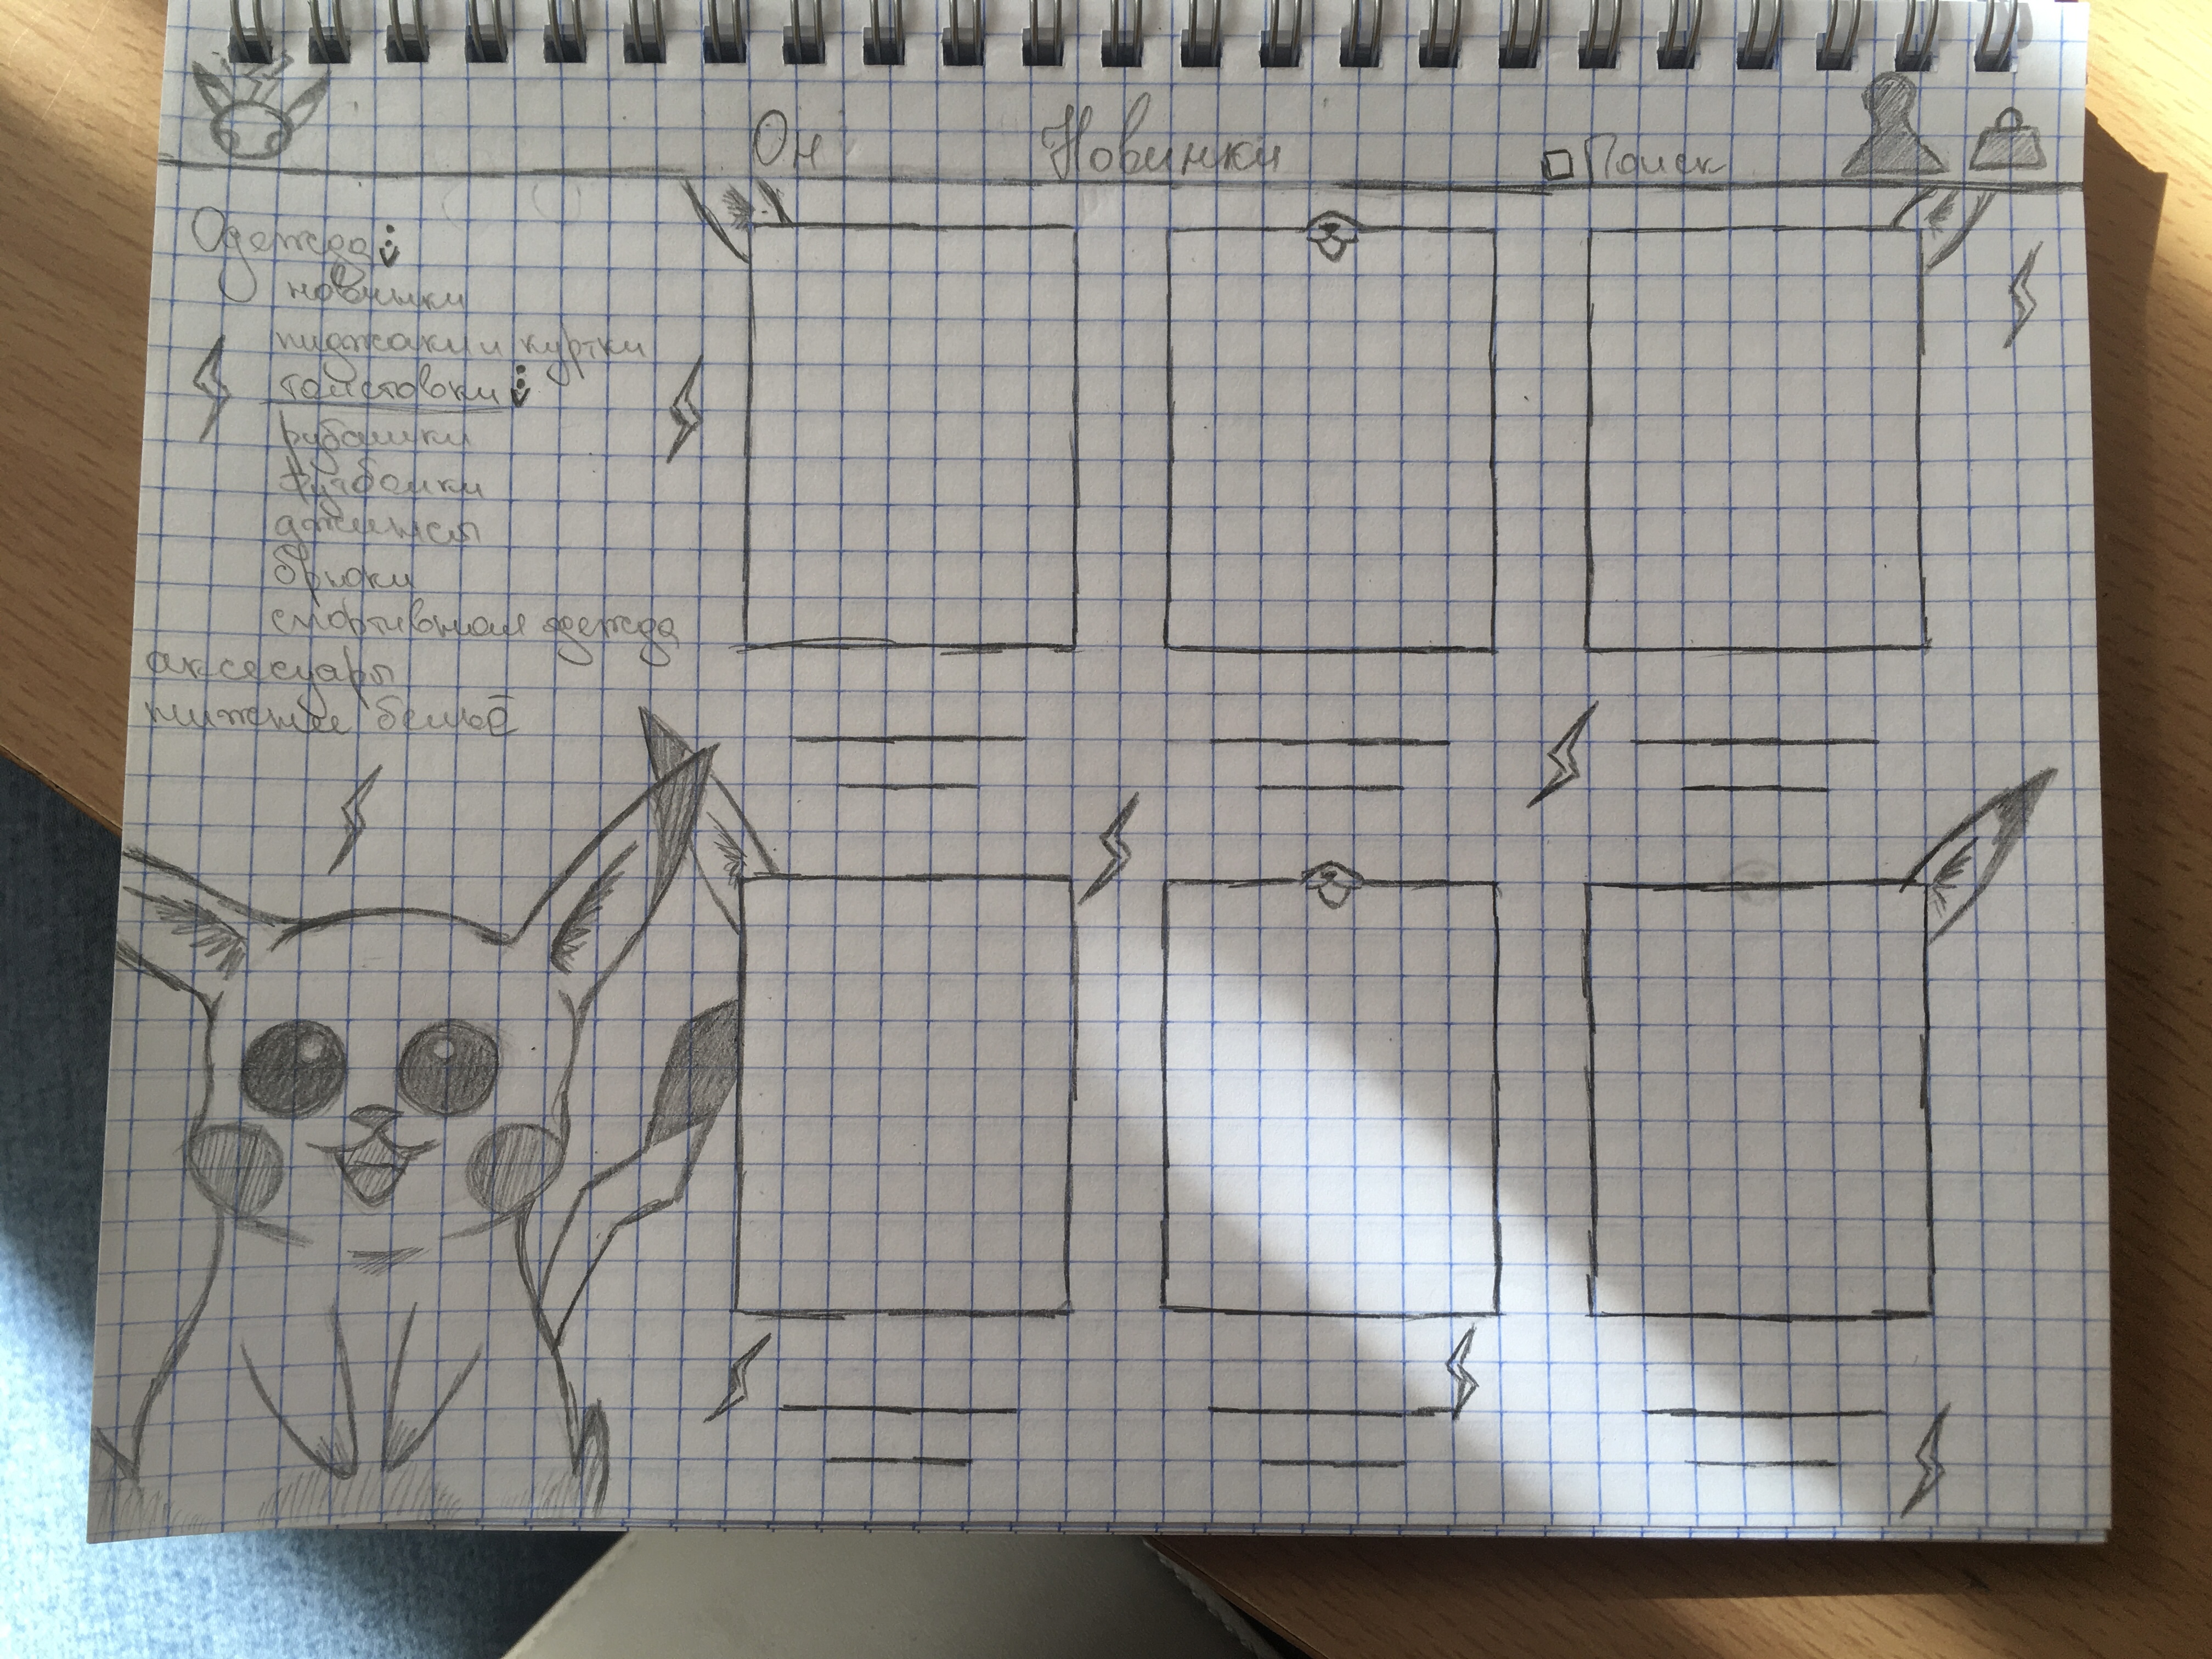 Он Новинки Поиск
Одежда:
новинки
пиджаки и куртки
толстовки:
рубашки
футболки
джинсы
брюки
спортивная одежда
аксесуары
нижнее бельё